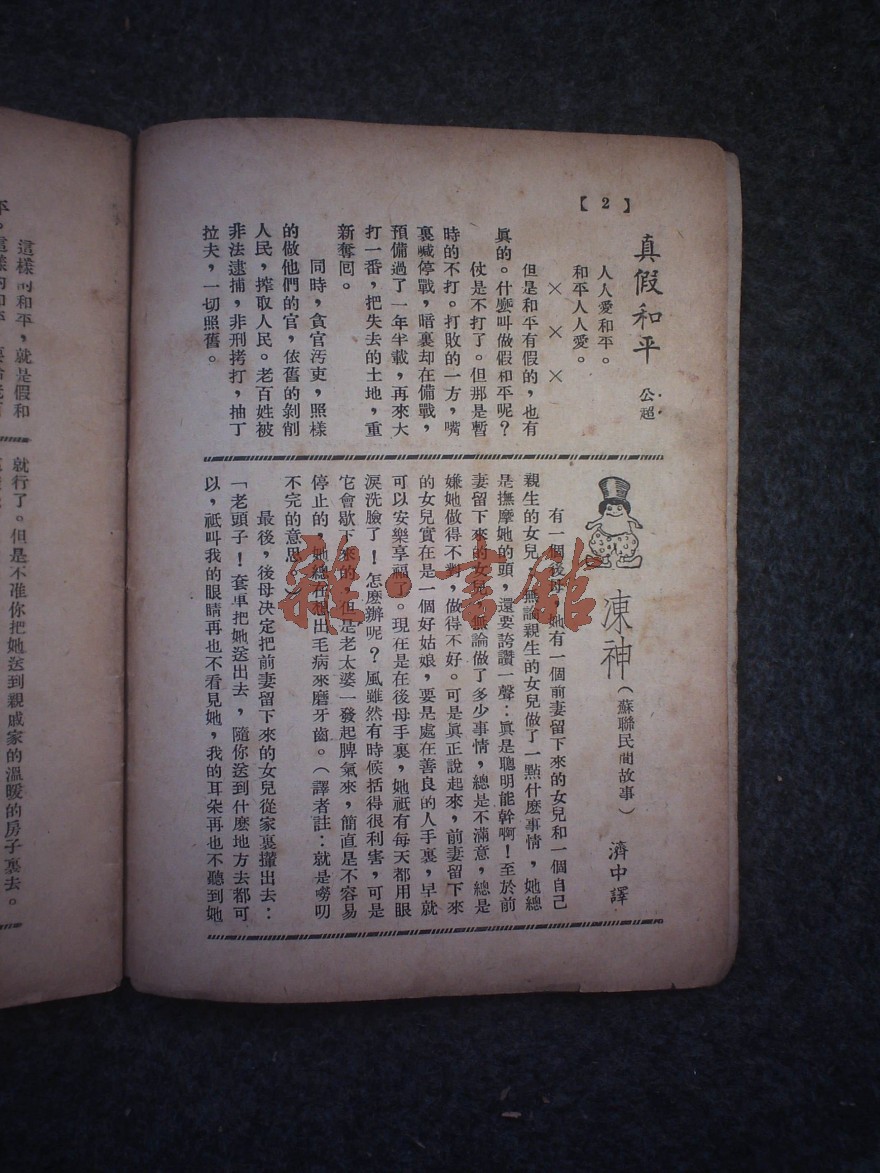 【2】
真假和平
公超
人人愛和平。
和平人人愛。
× × ×
但是和平有假的，也有
眞的。什麼叫做假和平呢？
仗是不打了。但那是暫
時的不打。打敗的一方，嘴
裏喊停戰，暗裏却在備戰，
預備過了一年半載，再來大
打一番，把失去的土地，重
新奪回。
同時，貪官汚吏，照樣
的做他們的官，依舊的剝削
人民，搾取人民。老百姓被
非法逮捕，非刑拷打，抽丁
拉夫，一切照舊。
凍神
（蘇聯民間故事）
濟中譯
有一個後母，她有一個前妻留下來的女兒和一個自己
親生的女兒。無論親生的女兒做了一點什麼事情，她總
是撫摩她的頭，還要誇讚一聲：眞是聰明能幹啊！至於前
妻留下來的女兒，無論做了多少事情，總是不滿意，總是
嫌她做得不對，做得不好。可是眞正說起來，前妻留下來
的女兒實在是一個好姑娘，要是處在善良的人手裏，早就
可以安樂享福了。現在是在後母手裏，她祇有每天都用眼
淚洗臉了！怎麼辦呢？風雖然有時候括得很利害，可是
它會歇下來的，但是老太婆一發起脾氣來，簡直是不容易
停止的，她總在想出毛病來磨牙齒。（譯者註：就是嘮叨
不完的意思。）
最後，後母決定把前妻留下來的女兒從家裏攆出去：
「老頭子！套車把她送出去，隨你送到什麼地方去都可
以，祇叫我的眼睛再也不看見她，我的耳朵再也不聽到她
這樣的和平，就是假和
就行了。但是不准你把她送到親戚家的溫暖的房子裏去。
雜·書館